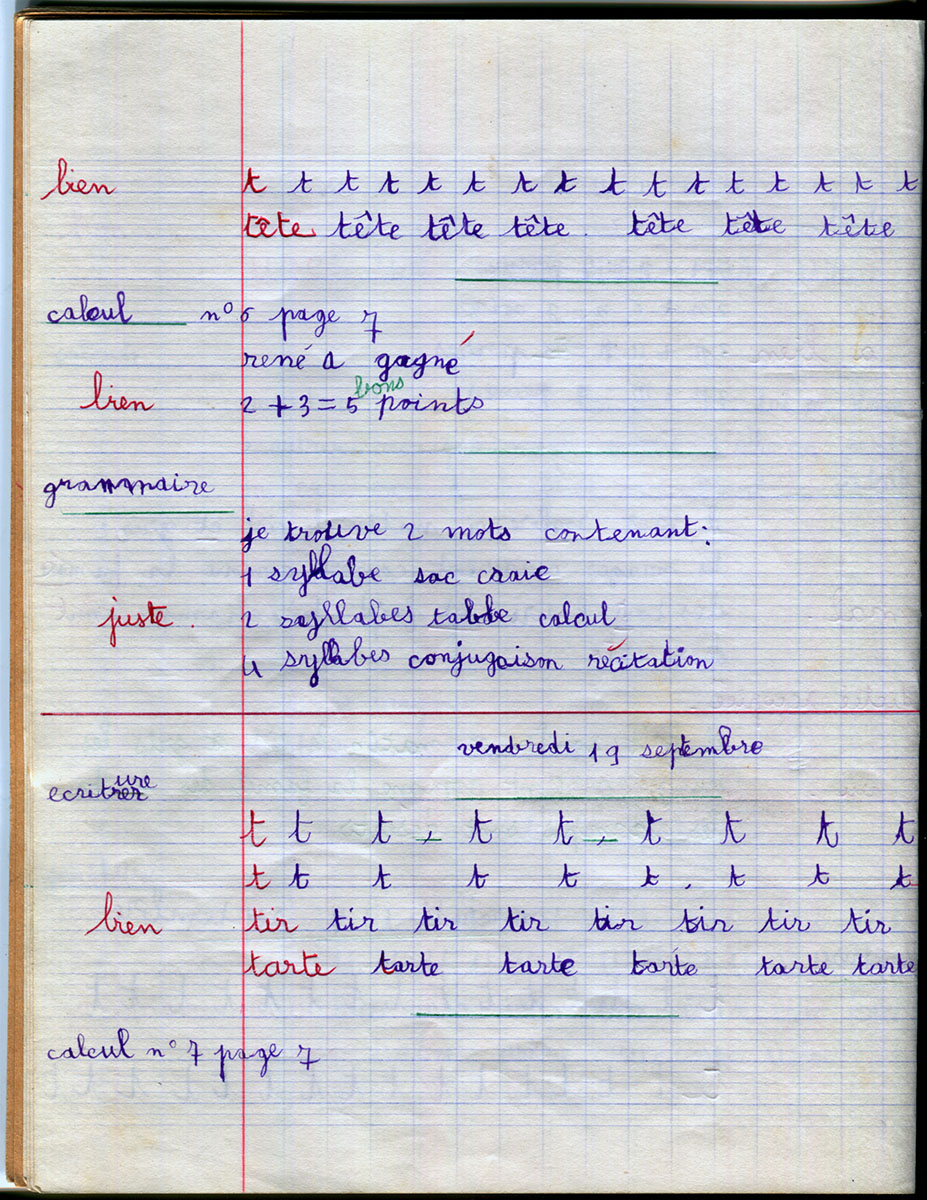 bien t t t t t t t t t t t t t t t t
tête tête tête tête . tête tête tête
calcul n° 6 page 7
rené a gagné
bons
bien 2 + 3 = 5 points
grammaire
je trouve 2 mots contenant :
1 syllabe sac craie
juste . 2 syllabes table calcul
4 syllabes conjugaison récitation
vendredi 19 septembre
ecriture
t t t , t t , t t t t
t t t t t t . t t t
bien tir tir tir tir tir tir tir tir
tarte tarte tarte tarte tarte tarte
calcul n° 7 page 7